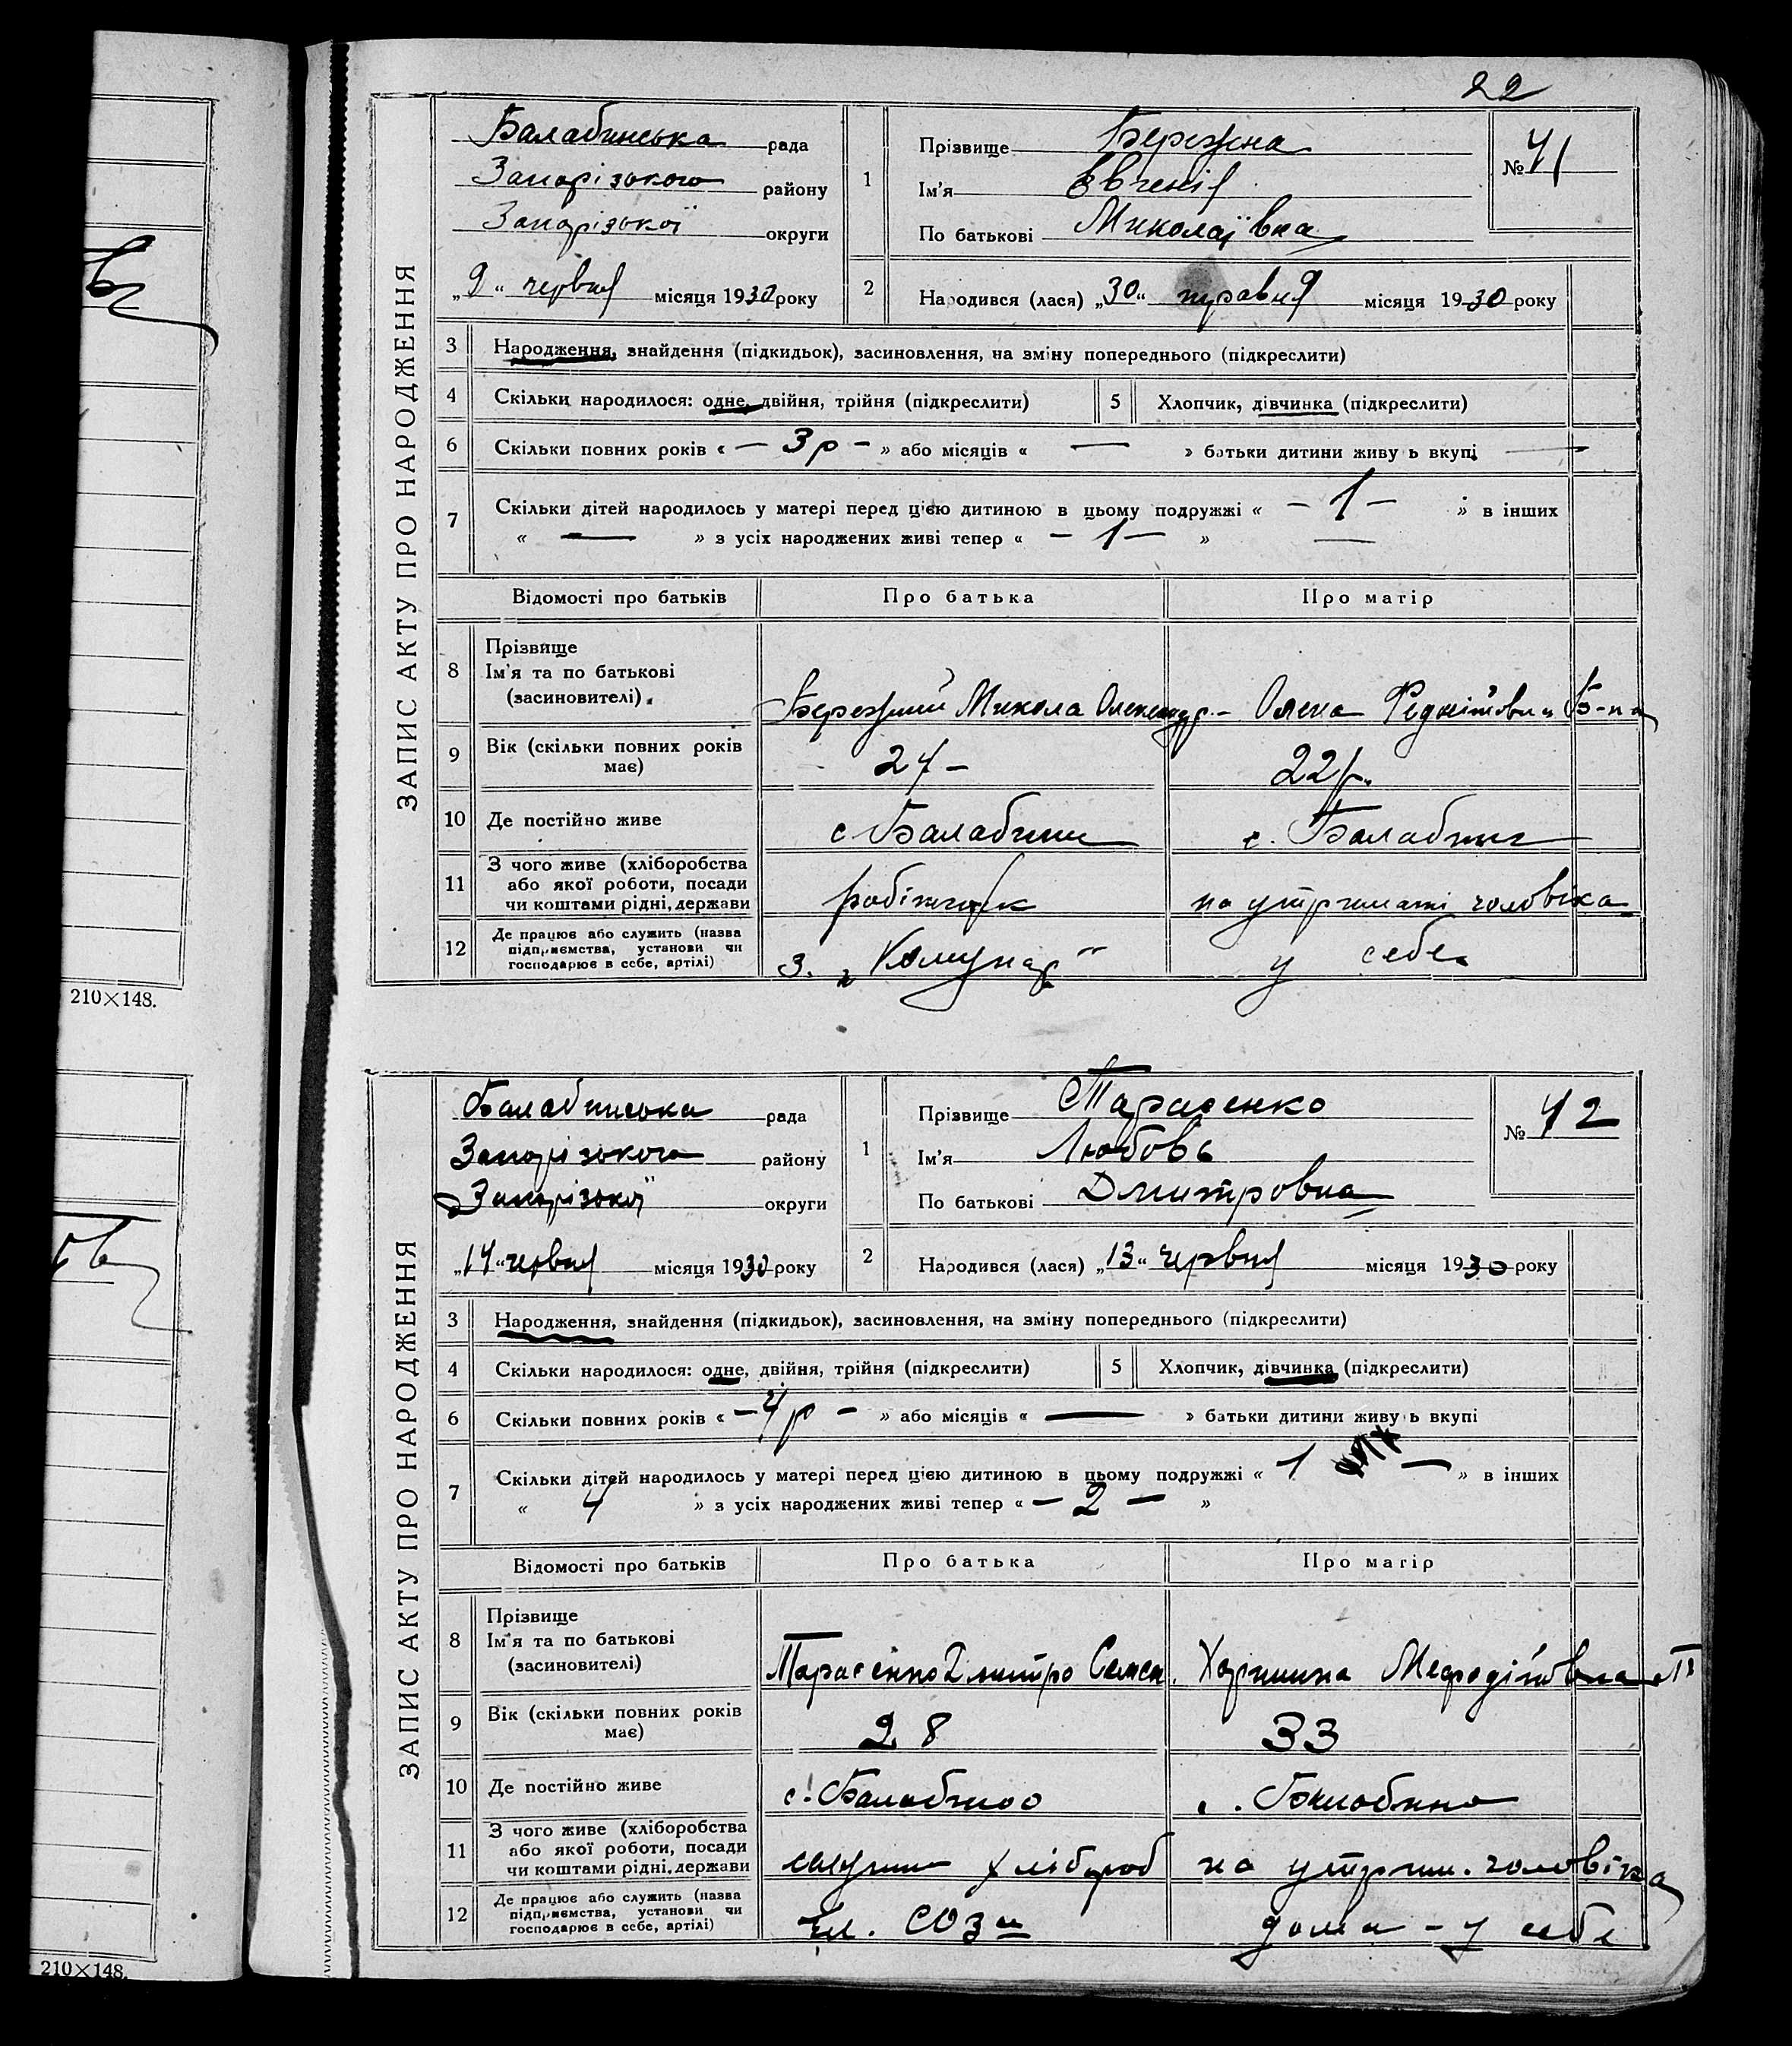 22
ЗАПИС АКТУ ПРО НАРОДЖЕННЯ
Балабинська рада
Запорізького району
Запорізької округи
„9“ червня місяця 1930 року
1
Прізвище Бережна
Ім'я Євгенія
По батькові Миколаївна
№ 41
2
Народився (лася) „30“ травня місяця 19 30 року
3 Народження, знайдення (підкидьок), засиновлення, на зміну попереднього (підкреслити)
4 Скільки народилося: одне, двійня, трійня (підкреслити) 5 Хлопчик, дівчинка (підкреслити)
6 Скільки повних років « — 3 р — » або місяців « — » батьки дитини живу ь вкупі —
7 Скільки дітей народилось у матері перед цією дитиною в цьому подружжі « — 1 — » в інших
« — » з усіх народжених живі тепер « — 1 — » —
Відомості про батьків Про батька Про матір
8 Прізвище
Ім'я та по батькові
(засновителі).
Бережний Микола Олександр. — Олена Б-на
9 Вік (скільки повних років
має)
24 — 22 р.
10 Де постійно живе с. Балабине с. Балабине
11 З чого живе (хліборобства
або якої роботи, посади
чи коштами рідні, держави
робітник на утриманні чоловіка
12 Де працює або служить (назва
підприємства, установи чи
господарює в себе, артілі)
з. „Комунар“ у себе
210×148.
ЗАПИС АКТУ ПРО НАРОДЖЕННЯ
Балабинська рада
Запорізького району
Запорізької округи
„14“ червня місяця 1930 року
1
Прізвище Тарасенко
Ім'я Любовь
По батькові Дмитровна
№ 42
2
Народився (лася) „13“ червня місяця 1930 року
3 Народження, знайдення (підкидьок), засиновлення, на зміну попереднього (підкреслити)
4 Скільки народилося: одне, двійня, трійня (підкреслити) 5 Хлопчик, дівчинка (підкреслити)
6 Скільки повних років « — 4 р — » або місяців « — » батьки дитини живу ь вкупі
7 Скільки дітей народилось у матері перед цією дитиною в цьому подружжі « 1 — » в інших
« 4 » з усіх народжених живі тепер « — 2 — »
Відомості про батьків Про батька Про матір
8 Прізвище
Ім'я та по батькові
(засиновителі)
Тарасенко Дмитро Семен. Харитина Мефодіївна Т
9 Вік (скільки повних років
має)
28 33
10 Де постійно живе с. Балабино с. Балабино
11 З чого живе (хліборобства
або якої роботи, посади
чи коштами рідні, держави
хлібороб на утрим. чоловіка
12 Де працює або служить (назва
підприємства, установи чи
господарює в себе, артілі)
чл. СОЗу дома - у себе
210×148.